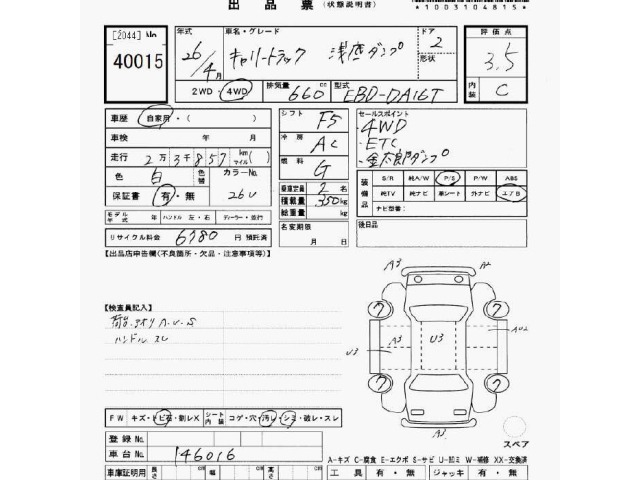 出品票(状態説明書)
*1003104815*
[2044] No.
40015
年式 26/4月
車名・グレード キャリートラック 浅底ダンプ
ドア 2
形状
評価点 3.5
内装 C
2WD・4WD 排気量 660cc 型式 EBD-DA16T
車歴 自家用・( )
シフト F5
セールスポイント
・4WD
・ETC
・金太郎ダンプ
車検 年 月
冷房 AC
走行 2万3千857km(マイル)
燃料 G
色 白 色替 カラーNo. 26U
装備品 S/R 純A/W P/S P/W ABS
保証書 有・無
乗車定員 2名
純TV 純ナビ 革シート 外ナビ エアB
積載量 350kg
ナビ型番:
モデル年式 年 ハンドル 左・右 ディーラー・並行
総重量 kg
リサイクル料金 6780円 預託済
名変期限 月 日
後日品
【出品店申告欄(不良箇所・欠品・注意事項等)】
【検査員記入】
荷台・アオリ A・U・S
ハンドル スレ
A3 A2
U3 A3 U3 AU2
A3
スペア
FW キズ・トビ石・割レX シート内装 コゲ・穴・汚レ・シミ・破レ・スレ
登録No.
車台No. 146016
A-キズ C-腐食 E-エクボ S-サビ U-凹ミ W-補修 XX-交換済
車庫証明用 長さ cm 幅 cm 高さ cm 工具 有・無 ジャッキ 有・無